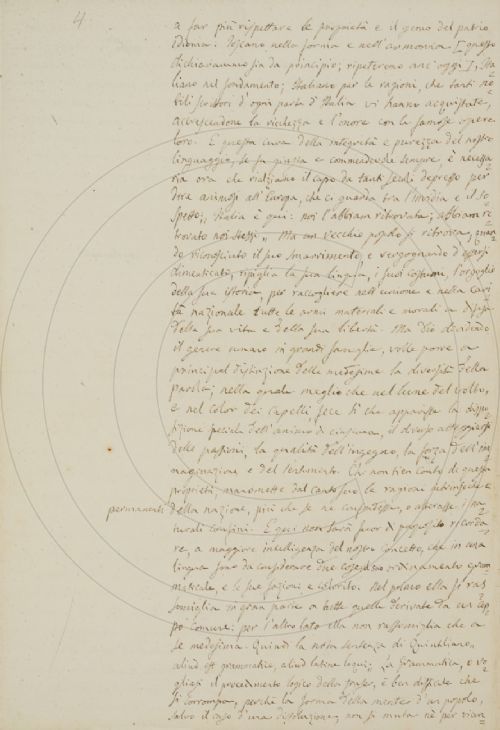 4
a far più rispettare le proprietà e il genio del patrio
Idioma: Toscano nella forma e nell'armonia [questo
dichiarammo sin da principio; ripetiamo anc'oggi], Ita-
liano nel fondamento; Italiano per le ragioni, che tanti no-
bili scrittori d'ogni parte d'Italia vi hanno acquistate,
accrescendone la ricchezza e l'onore con le famose opere
loro. E questa cura della integrità e purezza del nostro
linguaggio, se fu giusta e commendevole sempre, è necessa-
ria ora che rialziamo il capo da tanti secoli depresso per
dire animosi all'Europa, che ci guarda tra l'invidia e il so-
spetto; „ Italia è qui: noi l'abbiam ritrovata; abbiam ri-
trovato noi stessi. „ Ma un vecchio popolo si ritrova, quan-
do riconosciuto il suo smarrimento, e vergognando d'essersi
dimenticato, ripiglia la sua lingua, i suoi costumi, l'orgoglio
della sua istoria, per raccogliere nell'unione e nella cari-
tà nazionale tutte le armi materiali e morali a difesa
della sua vita e della sua libertà. Ma Dio dividendo
il genere umano in grandi famiglie, volle porre a
principal distinzione delle medesime la diversità della
parola; nella quale meglio che nel lume del volto,
e nel color dei capelli, fece sì che apparisse la dispo-
sizione speciale dell'animo di ciascuna, il diverso atteggiarsi
delle passioni, la qualità dell'ingegno, la forza dell'im-
maginazione e del sentimento. Chi non tien conto di queste
proprietà, manomette dal canto suo le ragioni intrinseche e
permanenti della nazione, più che se ne confondesse, o alterasse i na-
turali confini. E qui non sarà fuor di proposito ricorda-
re, a maggiore intelligenza del nostro concetto, che in una
lingua sono da considerare due cose, suo ordinamento gram-
maticale, e le sue fazioni, e colorito. Nel primo ella si ras-
somiglia in gran parte a tutte quelle derivate da un cep-
po comune: per l'altro lato ella non rassomiglia che a
se medesima. Quindi la nota sentenza di Quintiliano,
aliud est grammatice, aliud latine loqui. La grammatica, o vo-
gliasi il procedimento logico della frase, è ben difficile che
si corrompa, perchè la forma della mente d'un popolo,
salvo il caso d'una dissoluzione, non si muta nè per vian-